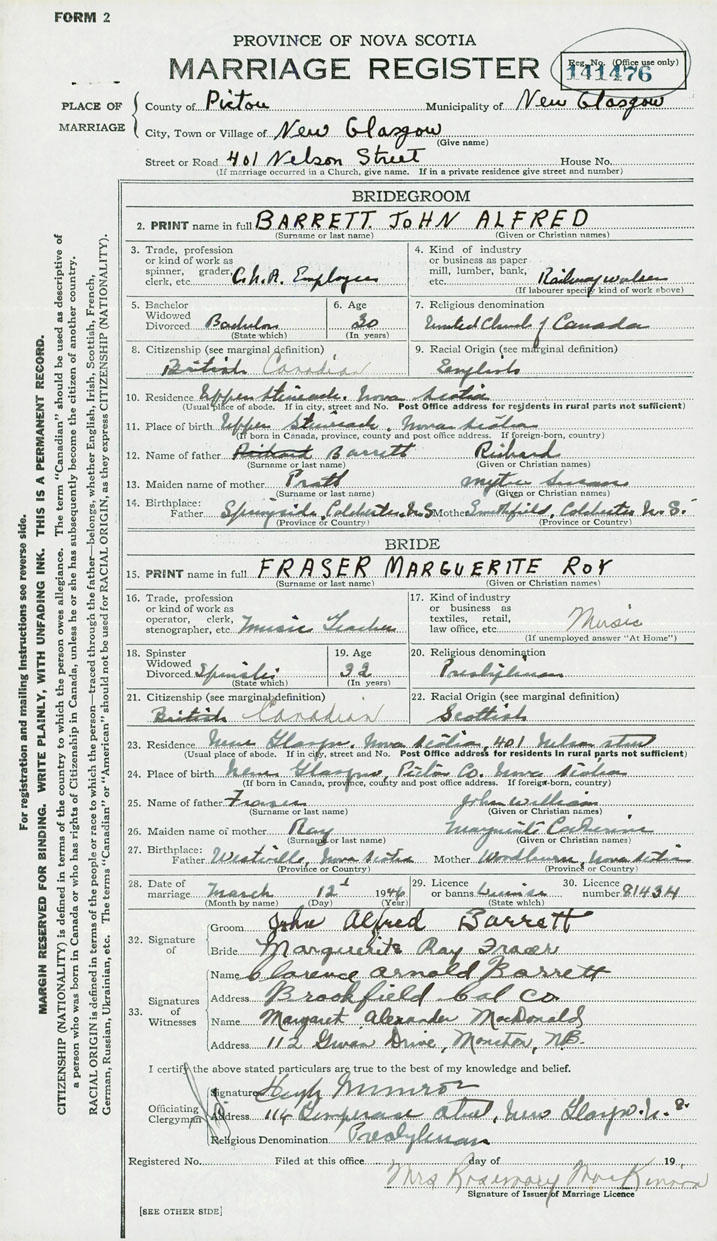 FORM 2
PROVINCE OF NOVA SCOTIA
MARRIAGE REGISTER
Reg. No. (Office use only)
141476
PLACE OF MARRIAGE
County of Pictou Municipality of New Glasgow
City, Town or Village of New Glasgow
(Give name)
Street or Road 401 Nelson Street House No.
(If marriage occurred in a Church, give name. If in a private residence give street and number)
BRIDEGROOM
2. PRINT name in full BARRETT JOHN ALFRED
(Surname or last name) (Given or Christian names)
3. Trade, profession or kind of work as spinner, grader, clerk, etc. Employee
4. Kind of industry or business as paper mill, lumber, bank, etc. Railway
(If labourer specify kind of work above)
5. Bachelor Widowed Divorced Bachelor
(State which)
6. Age 30
(In years)
7. Religious denomination United Church of Canada
8. Citizenship (see marginal definition) British Canadian
9. Racial Origin (see marginal definition) English
10. Residence Upper Stewiacke, Nova Scotia
(Usual place of abode. If in city, street and No. Post Office address for residents in rural parts not sufficient)
11. Place of birth Upper Stewiacke, Nova Scotia
(If born in Canada, province, county and post office address. If foreign-born, country)
12. Name of father Richard Barrett Richard
(Surname or last name) (Given or Christian names)
13. Maiden name of mother Pratt Susan
(Surname or last name) (Given or Christian names)
14. Birthplace: Father Springside, Colchester N.S. Mother Smithfield, Colchester N.S.
(Province or Country) (Province or Country)
BRIDE
15. PRINT name in full FRASER MARGUERITE ROY
(Surname or last name) (Given or Christian names)
16. Trade, profession or kind of work as operator, clerk, stenographer, etc. Music Teacher
17. Kind of industry or business as textiles, retail, law office, etc. Music
(If unemployed answer "At Home")
18. Spinster Widowed Divorced Spinster
(State which)
19. Age 32
(In years)
20. Religious denomination Presbyterian
21. Citizenship (see marginal definition) British Canadian
22. Racial Origin (see marginal definition) Scottish
23. Residence New Glasgow, Nova Scotia, 401 Nelson Street
(Usual place of abode. If in city, street and No. Post Office address for residents in rural parts not sufficient)
24. Place of birth New Glasgow, Pictou Co. Nova Scotia
(If born in Canada, province, county and post office address. If foreign-born, country)
25. Name of father Fraser John William
(Surname or last name) (Given or Christian names)
26. Maiden name of mother Ray Marguerite Catherine
(Surname or last name) (Given or Christian names)
27. Birthplace: Father Westville, Nova Scotia Mother Woodburn, Nova Scotia
(Province or Country) (Province or Country)
28. Date of marriage March 12 1946
(Month by name) (Day) (Year)
29. Licence or banns License
(State which)
30. Licence number 81434
32. Signature of
Groom John Alfred Barrett
Bride Marguerite Ray Fraser
33. Signatures of Witnesses
Name Clarence Arnold Barrett
Address Brookfield Col Co
Name Margaret Alexander MacDonald
Address 112 Drive, Moncton, N.B.
I certify the above stated particulars are true to the best of my knowledge and belief.
Officiating Clergyman
Signature Hugh Munroe
Address 114 Temperance Street, New Glasgow N.S.
Religious Denomination Presbyterian
Registered No. Filed at this office day of 19
Mrs Rosemary MacKinnon
Signature of Issuer of Marriage Licence
[SEE OTHER SIDE]
For registration and mailing instructions see reverse side.
MARGIN RESERVED FOR BINDING. WRITE PLAINLY, WITH UNFADING INK. THIS IS A PERMANENT RECORD.
CITIZENSHIP (NATIONALITY) is defined in terms of the country to which the person owes allegiance. The term "Canadian" should be used as descriptive of
a person who was born in Canada or who has rights of Citizenship in Canada, unless he or she has subsequently become the citizen of another country.
RACIAL ORIGIN is defined in terms of the people or race to which the person—traced through the father—belongs, whether English, Irish, Scottish, French,
German, Russian, Ukrainian, etc. The terms "Canadian" or "American" should not be used for RACIAL ORIGIN, as they express CITIZENSHIP (NATIONALITY).